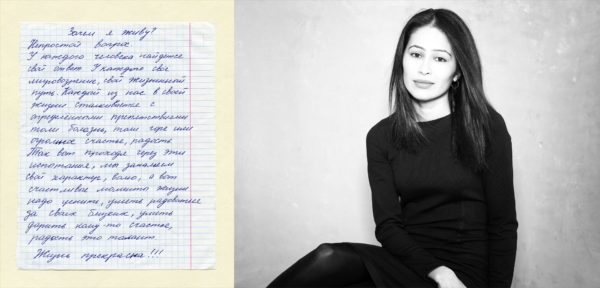 Зачем я живу?
Непростой вопрос
У каждого человека найдется
свой ответ. У каждого свое
мировоззрение, свой жизненный
путь. Каждый из нас в своей
жизни сталкивается с
определенными препятствиями
толи болезнь, толи горе или
огромное счастье, радость.
Так вот проходя через эти
испытания, мы закаляем
свой характер, волю, а вот
счастливые моменты жизни
надо ценить, уметь радоваться
за своих близких, уметь
дарить кому-то счастье,
радость это талант.
Жизнь прекрасна!!!